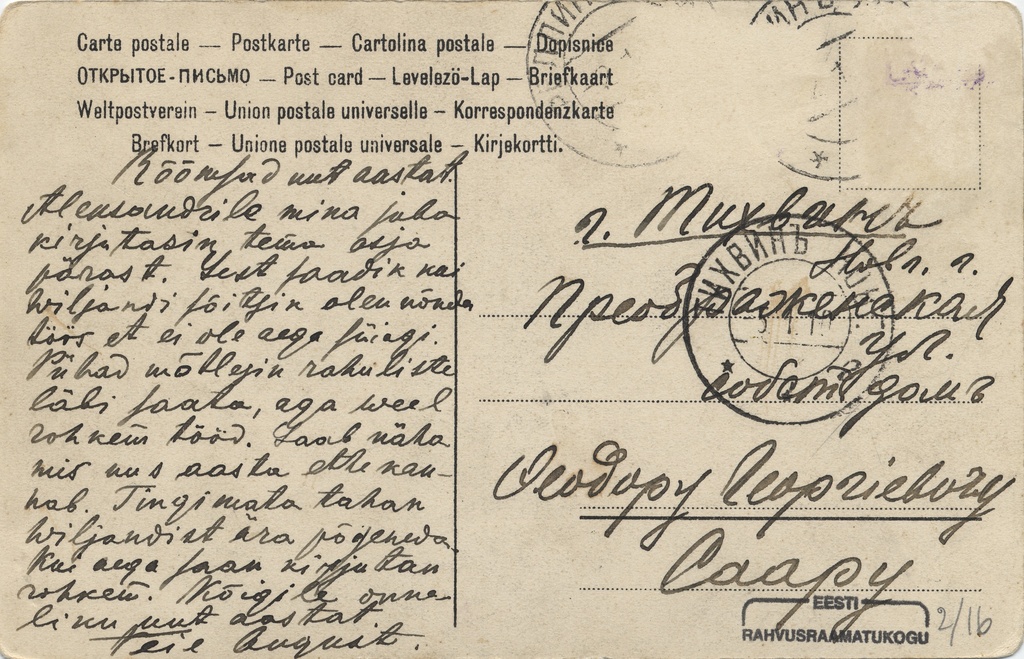 Carte postale — Postkarte — Cartolina postale — Dopisnice
ОТКРЫТОЕ-ПИСЬМО — Post card — Levelezö-Lap — Briefkaart
Weltpostverein — Union postale universelle — Korrespondenzkarte
Brefkort — Unione postale universale — Kirjekortti.
Rõõmsad uut aastat.
Aleksandrile mina juba
kirjutasin tema asja
pärast. Sest saadik kui
Wiljandi sõitsin olen nõnda
töös et ei ole aega süiagi.
Pühad mõtlesin rahuliste
läbi saata, aga weel
rohkem tööd. Saab näha
mis uus aasta ette kan-
nab. Tingimata tahan
Wiljandist ära põgeneda.
Kui aega saan kirjutan
rohkem. Kõigile õnne-
liku uut aastat
Teie August.
г. Тихвинъ
Новг. г.
Преображенская
ул.
собств домъ
Феодору Георгіевичу
Саару
ТИХВИНЪ
EESTI
RAHVUSRAAMATUKOGU
2/16